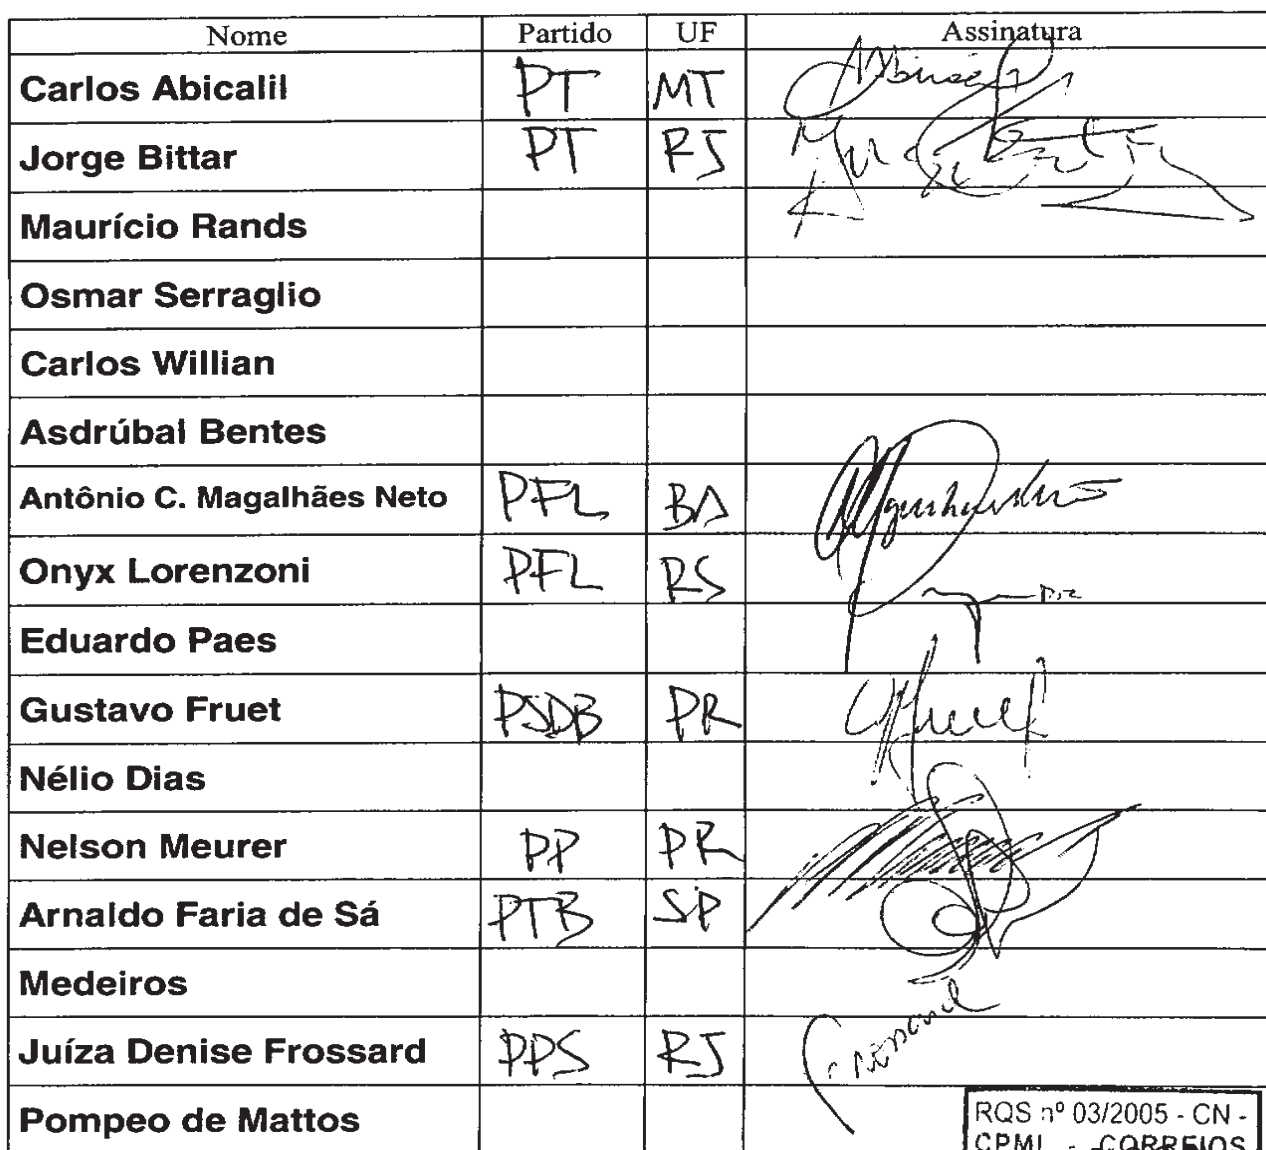 Nome Partido UF Assinatura
Carlos Abicalil PT MT
Jorge Bittar PT RJ
Maurício Rands
Osmar Serraglio
Carlos Willian
Asdrúbal Bentes
Antônio C. Magalhães Neto PFL BA
Onyx Lorenzoni PFL RS
Eduardo Paes
Gustavo Fruet PSDB PR
Nélio Dias
Nelson Meurer PP PR
Arnaldo Faria de Sá PTB SP
Medeiros
Juíza Denise Frossard PPS RJ
Pompeo de Mattos
RQS nº 03/2005 - CN -
CPMI - CORREIOS